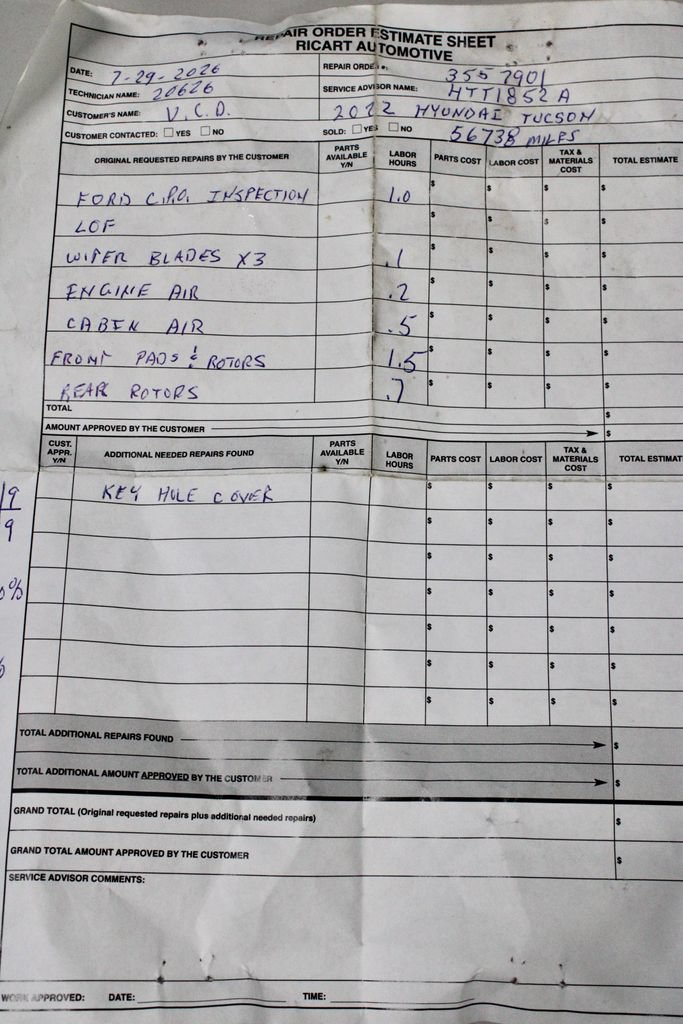 REPAIR ORDER ESTIMATE SHEET
RICART AUTOMOTIVE
DATE: 7-29-2026 REPAIR ORDER #: 355 7901
TECHNICIAN NAME: 20626 SERVICE ADVISOR NAME: HTT1852A
CUSTOMER'S NAME: V.C.D. 2022 HYUNDAI TUCSON
CUSTOMER CONTACTED: ☐ YES ☐ NO SOLD: ☐ YES ☐ NO 56738 MILES
ORIGINAL REQUESTED REPAIRS BY THE CUSTOMER PARTS AVAILABLE Y/N LABOR HOURS PARTS COST LABOR COST TAX & MATERIALS COST TOTAL ESTIMATE
FORD C.P.O. INSPECTION 1.0 $ $ $ $
LOF $ $ $ $
WIPER BLADES X3 .1 $ $ $ $
ENGINE AIR .2 $ $ $ $
CABIN AIR .5 $ $ $ $
FRONT PADS & ROTORS 1.5 $ $ $ $
REAR ROTORS .7 $ $ $ $
TOTAL $
AMOUNT APPROVED BY THE CUSTOMER $
CUST. APPR. Y/N ADDITIONAL NEEDED REPAIRS FOUND PARTS AVAILABLE Y/N LABOR HOURS PARTS COST LABOR COST TAX & MATERIALS COST TOTAL ESTIMAT
KEY HOLE COVER $ $ $ $
$ $ $ $
$ $ $ $
$ $ $ $
$ $ $ $
$ $ $ $
$ $ $ $
TOTAL ADDITIONAL REPAIRS FOUND $
TOTAL ADDITIONAL AMOUNT APPROVED BY THE CUSTOMER $
GRAND TOTAL (Original requested repairs plus additional needed repairs) $
GRAND TOTAL AMOUNT APPROVED BY THE CUSTOMER $
SERVICE ADVISOR COMMENTS:
WORK APPROVED: DATE: TIME: